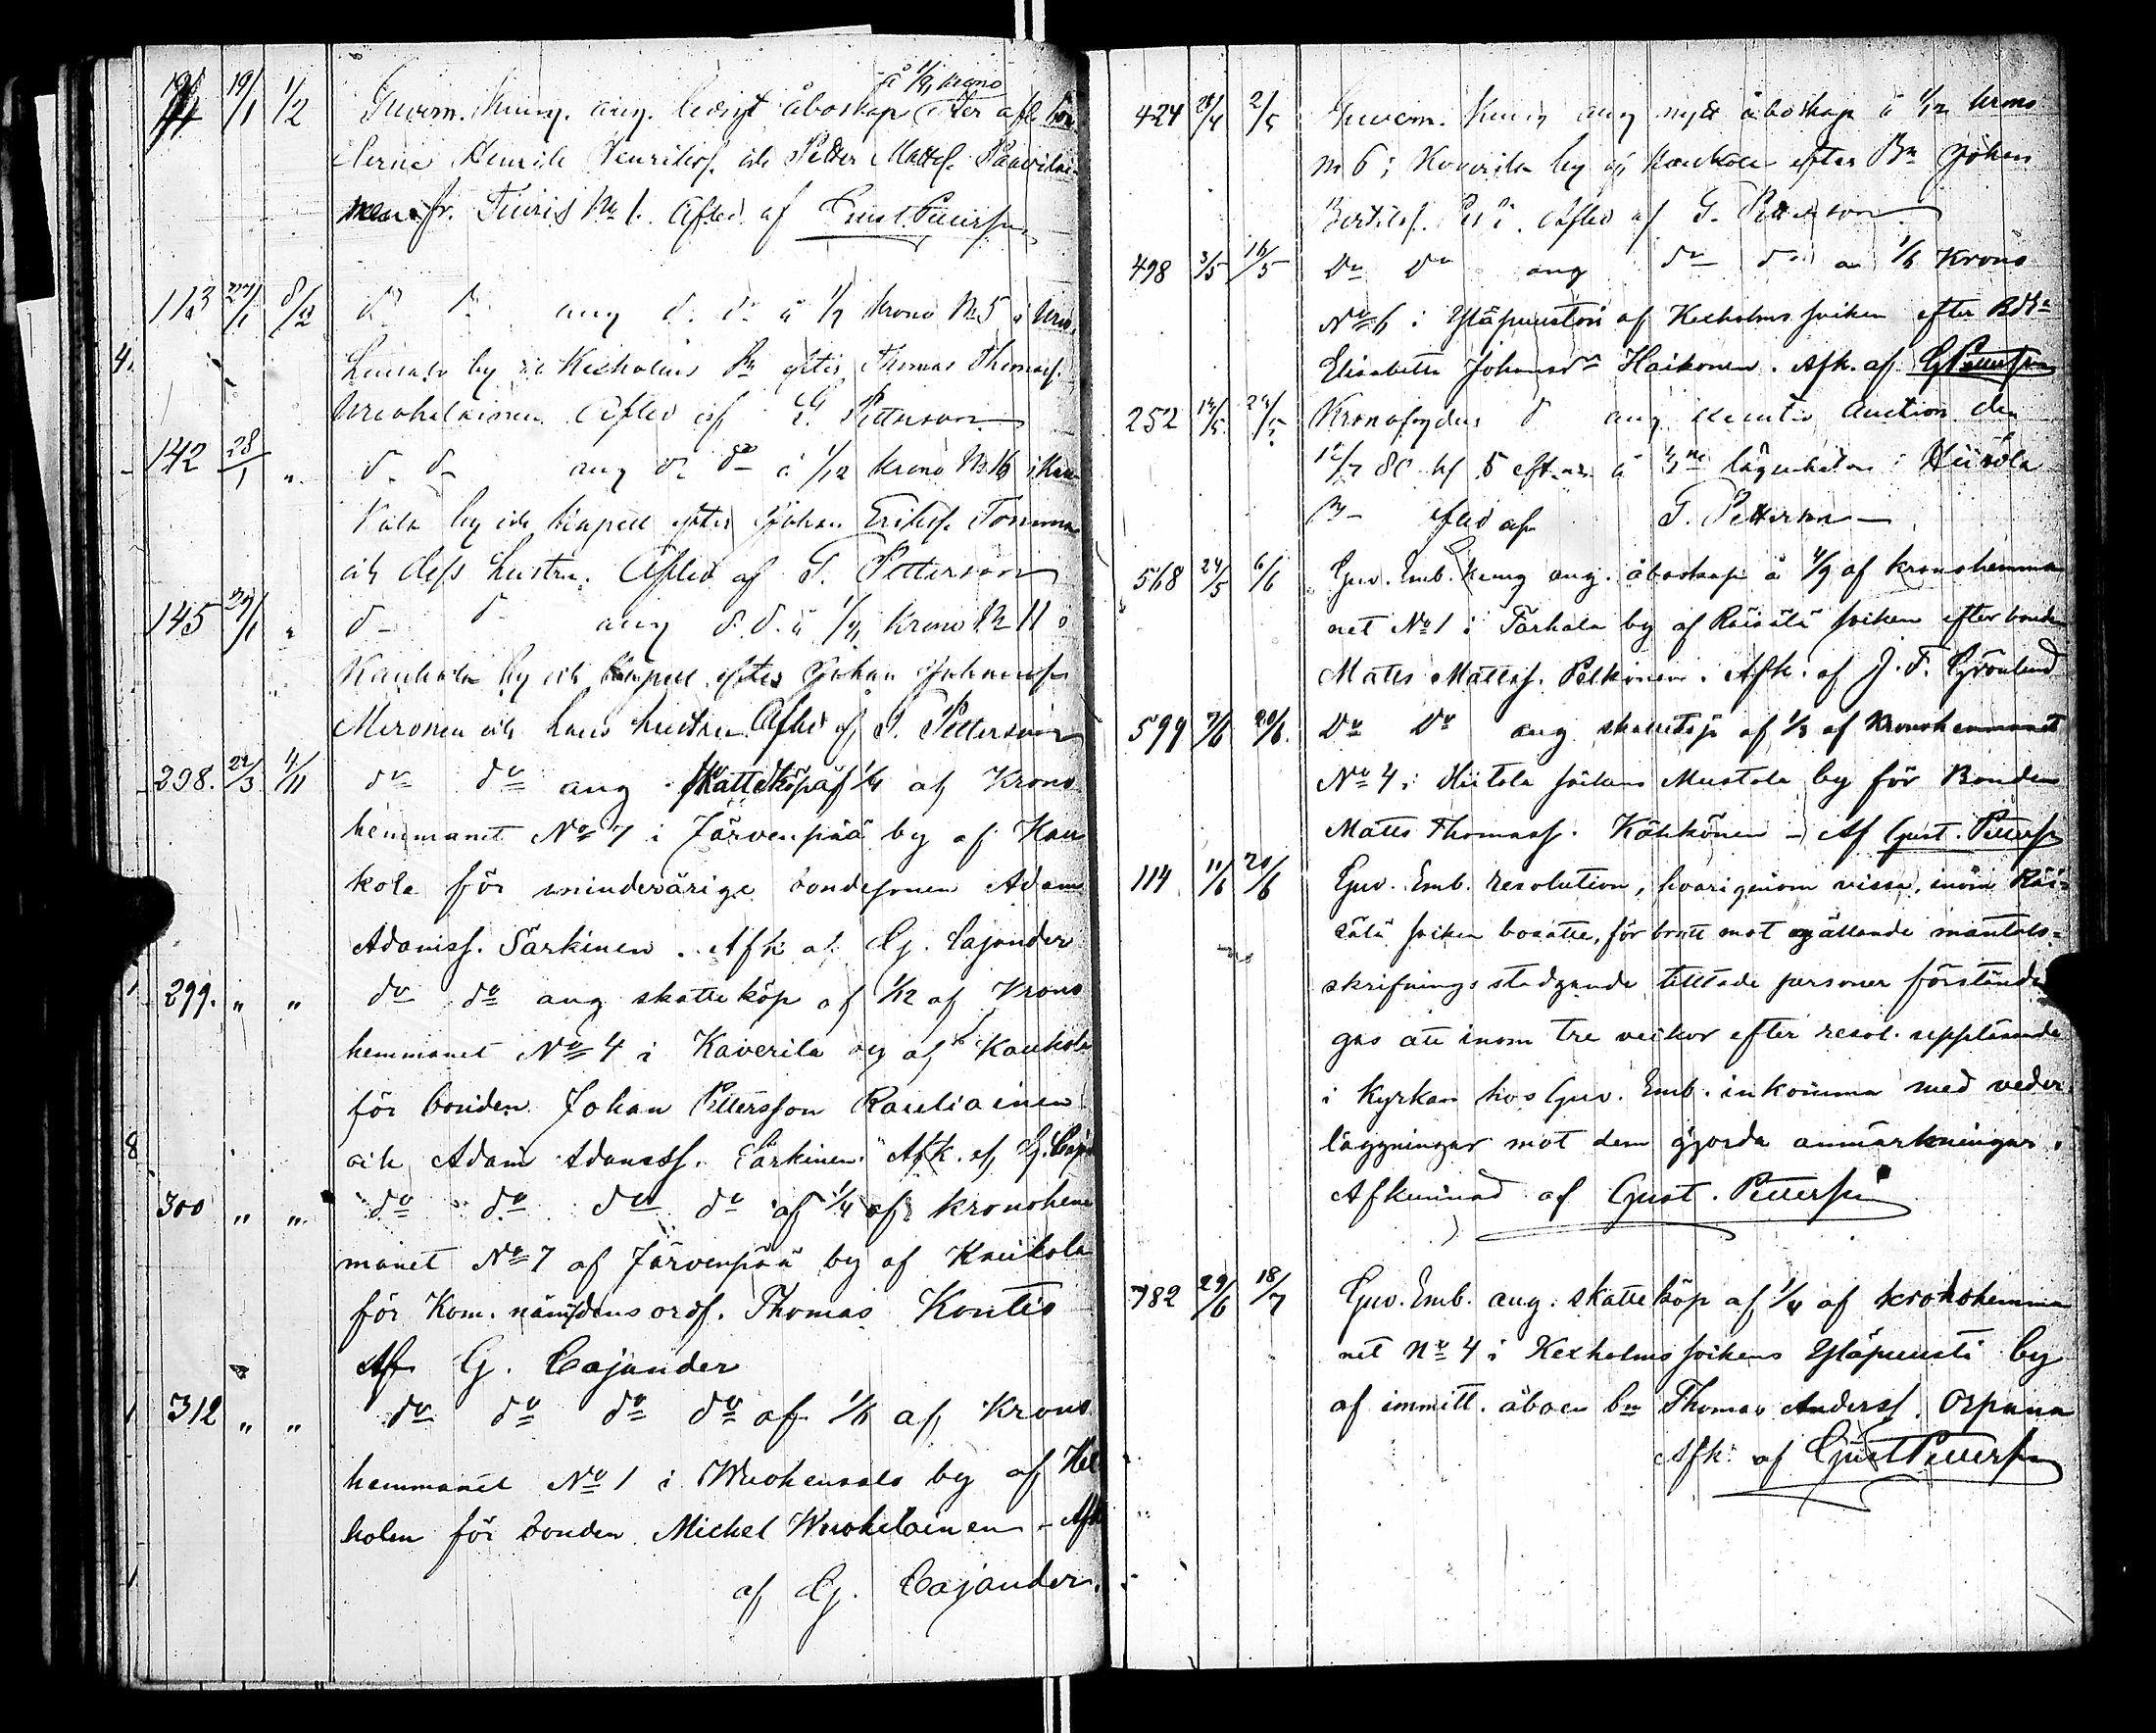 å 1/9 krono
19/1 1/2 Guvern. Kung. ang. ledigt åboskap efter afl. bön
derne Henrik Henrikss. och Petter Mattss. Paavilai
nen fr. Tiuris No 1. Afled af Gust Petterss
113 27/1 8/2 do do ang do do å 1/7 krono No 5 i Wuo
hensalo by och Kexholms Sn efter Thomas Thomass.
Wuohelainen Afled af G. Petterson
142 28/1 " do do ang do do å 1/12 krono No 16 i Kau
kola by och kapell efter Johan Erikss. Tommo
och dess hustru. Afled af G. Petterson
145 29/1 " do do ang d. d. å 1/4 krono No 11 i
Kaukola by och kapell efter Johan Johanss.
Meronen och hans hustru Afled af G. Petterson
298. 22/3 4/11 do do ang skatteköp af 1/4 af Krono
hemmanet No 7 i Järvenpää by af Kau
kola för minderårige bondesonen Adam
Adamss. Särkinen. Afk af G. Cajander
299. " " do do ang skatteköp af 1/12 af Krono
hemmanet No 4 i Kaverila by af Kaukola
för bonden Johan Pettersson Rauliainen
och Adam Adamss. Särkinen. Afk. af G. Caja
300 " " do do do do af 1/4 af kronohem
manet No 7 af Järvenpää by af Kaukola
för Kom. nämdens ordf. Thomas Kontio
Af G. Cajander
312 " " do do do do af 1/6 af Krono
hemmanet No 1 i Wuohensalo by af Kex
holm för bonden Michel Wuohelainen - Afk
af G. Cajander.
424 28/4 2/5 Guvern. Kung ang nytt åboskap å 1/12 krono
No 6 i Kaverila by af Kaukola efter Bn Johan
Bertilss. Afled af G. Petterson
498 3/5 16/5 Do Do ang do do å 1/6 Krono
No 6 i Yläpuuston af Kexholms socken efter
Elisabetta Johansdr Haikonen. Afk. af G Petterson
252 14/5 24/5 Kronofogdens d ang execut. auction den
12/7 80 kl 5 eft.m. å lägenheten i Hiitola
Sn Aflед af G. Petterson
568 24/5 6/6 Guv. Emb. Kung ang. åboskap å 1/9 af kronohemma
net No 1 i Tarhala by af Räisälä socken efter bonden
Matts Mattss. Pelkonen. Afk. af J. F. Grönlund
599 7/6 20/6. Do Do ang skatteköp af 1/3 af Kronohemmanet
No 4 i Hiitola sockens Mustola by för Bonden
Matts Thomass. Köhkönen - Af Gust. Petterss
114 11/6 21/6 Guv. Emb. resolution, hvarigenom vissa, inom Räi-
sälä socken bosatte, för brott mot gällande mantals-
skrifnings stadgande tilltalade personer förständi
gas att inom tre veckor efter resol. uppläsande
i kyrkan hos Guv. Emb. inkomma med veder
läggningar mot dem gjorda anmärkningar.
Afkunnad af Gust. Petterss
782 29/6 18/7 Guv. Emb. ang. skatteköp af 1/4 af kronohemma
net No 4 i Kexholms sockens Yläpuusti by
af immitt. åboen bn Thomas Anderss. Orpana
Afk. af Gust Petterss